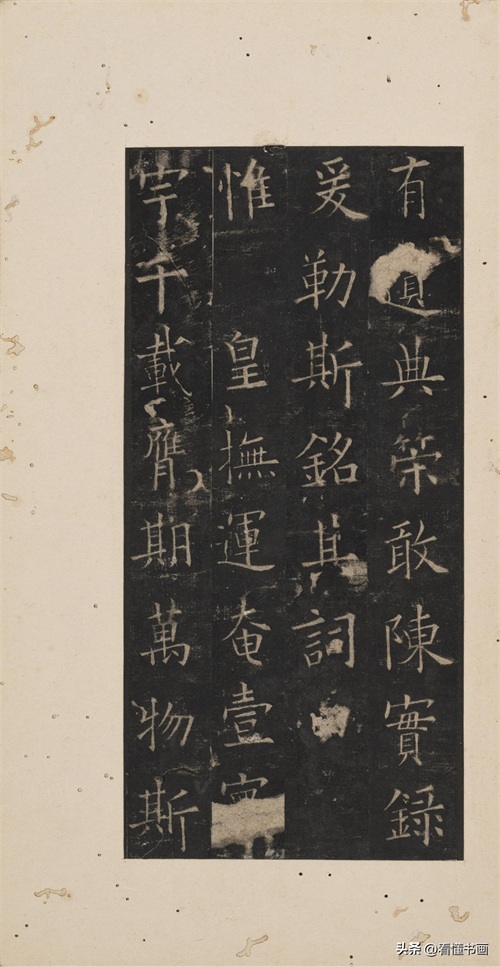 有遺典策敢陳實録
爰勒斯銘其詞
惟 皇撫運奄壹寰
宇千載膺期萬物斯
头条 @看懂书画